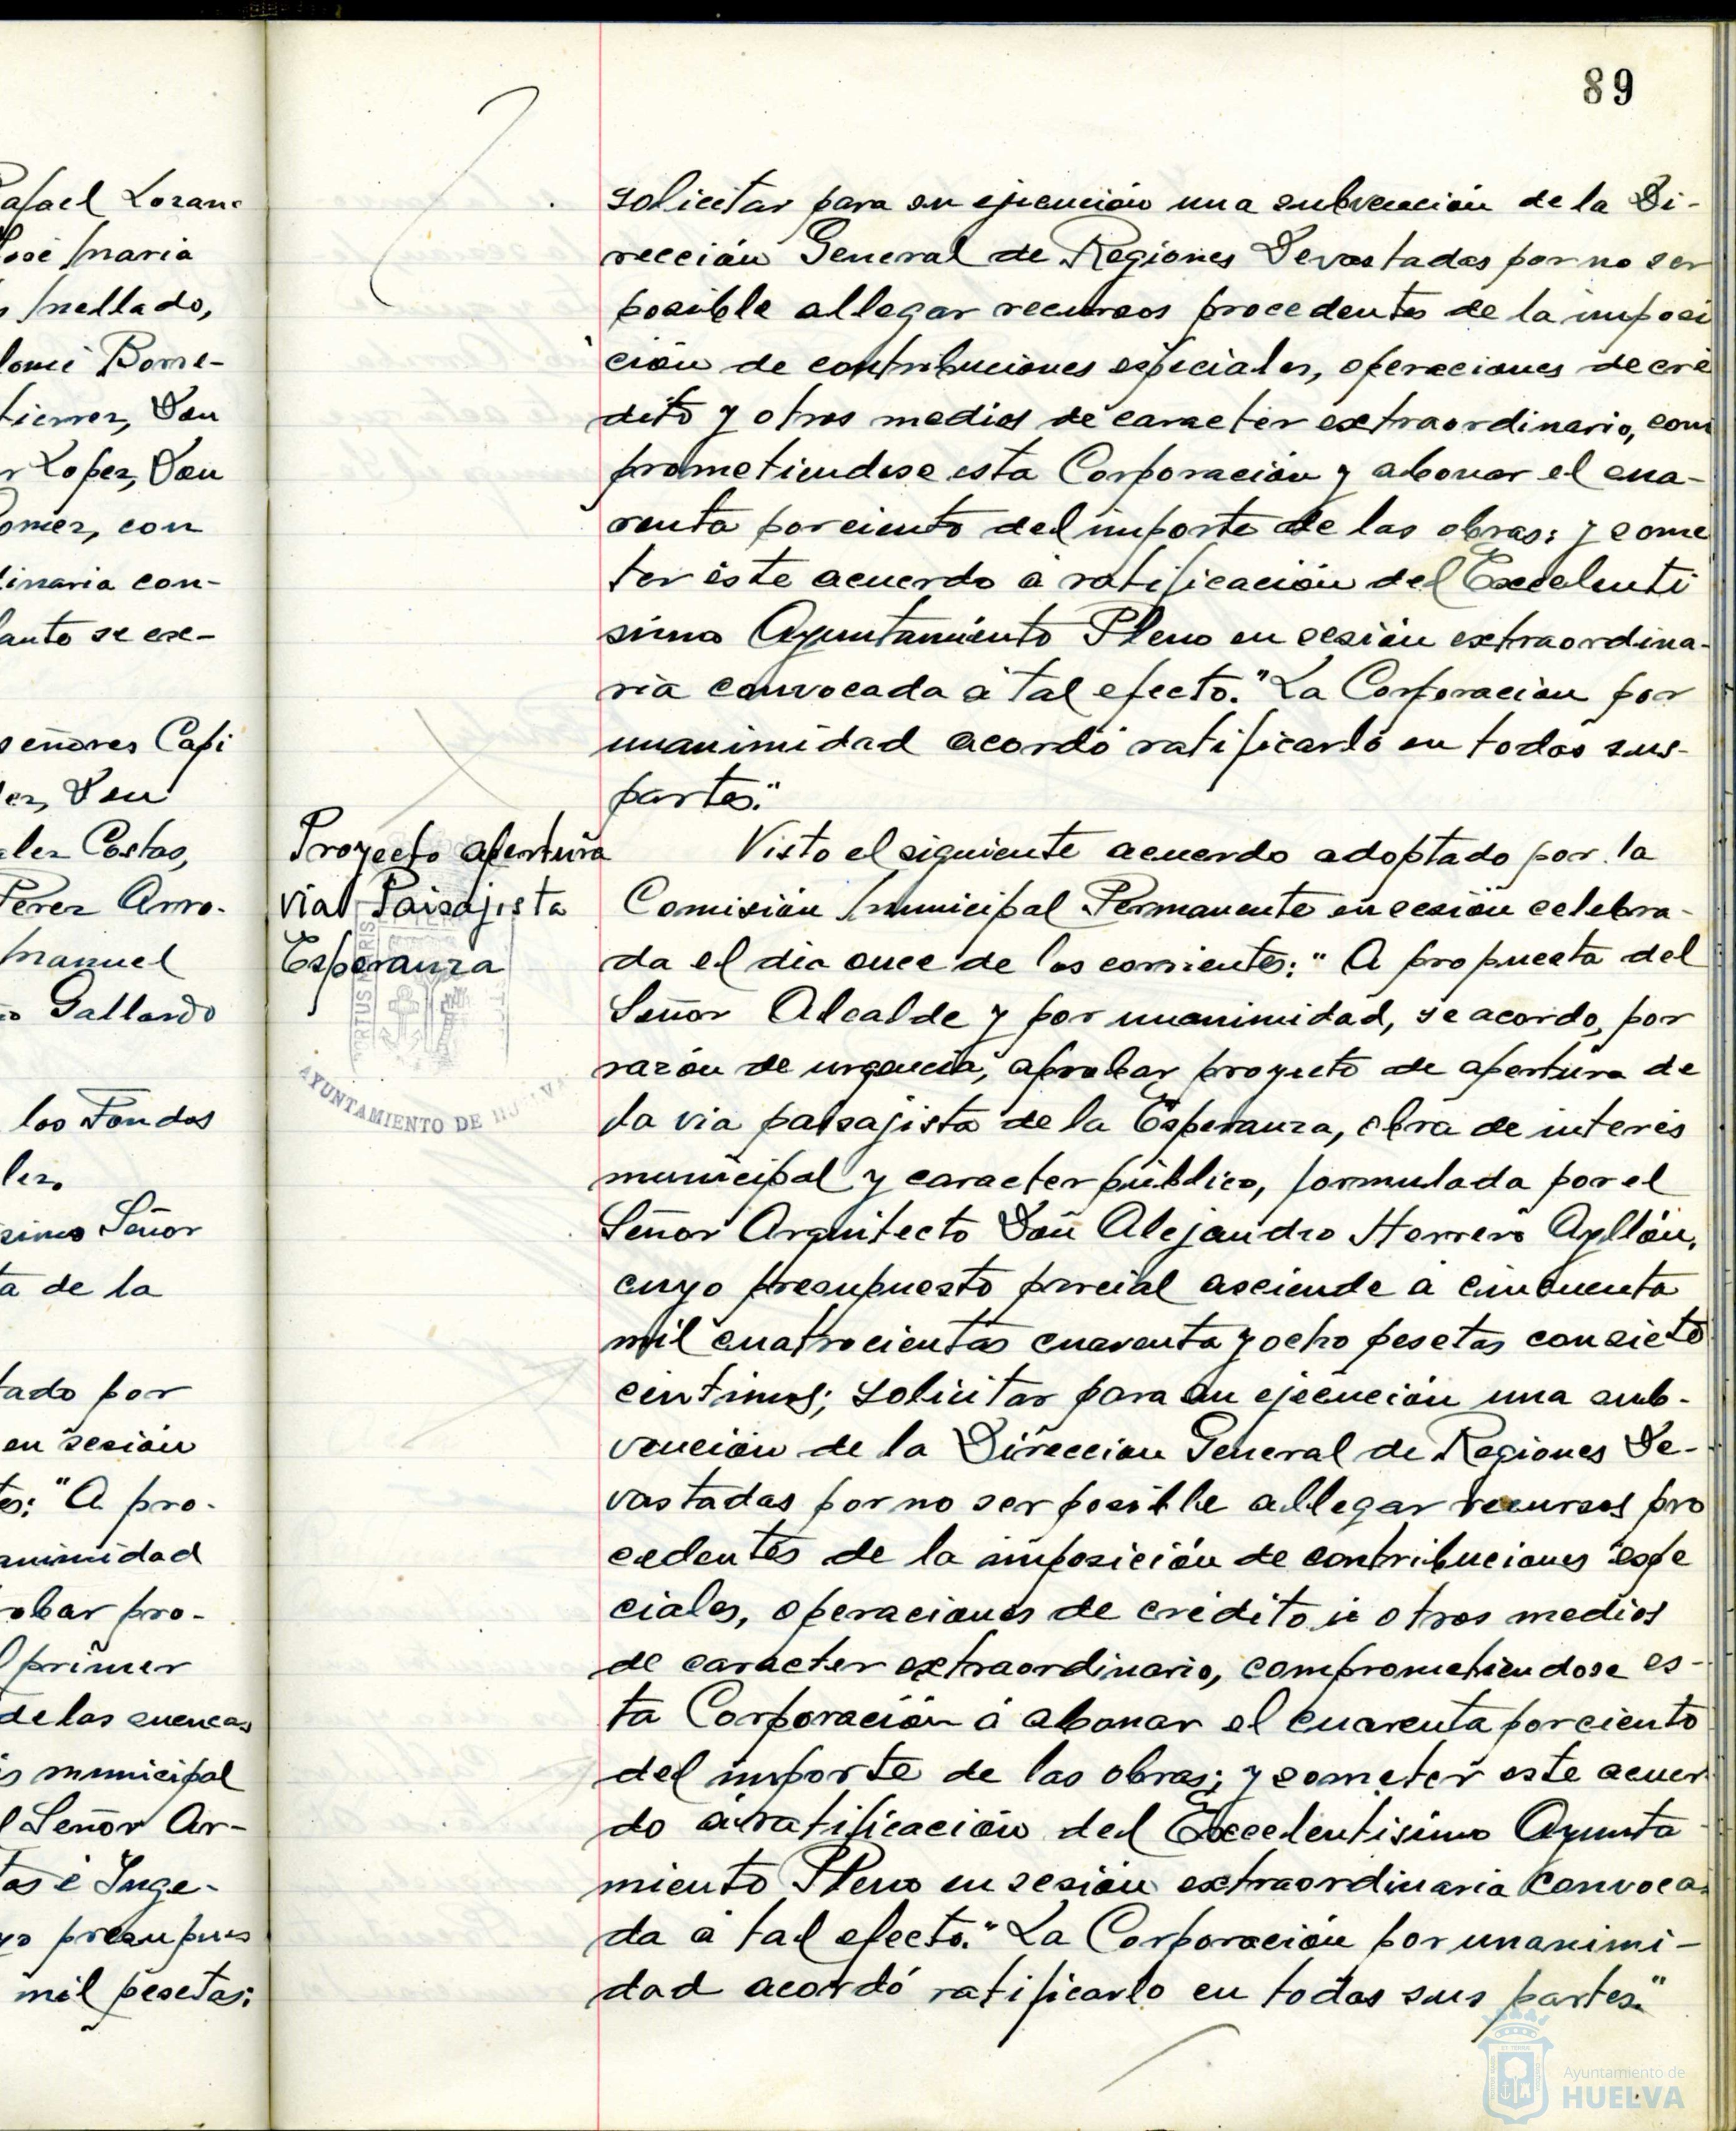 89
afael Lozano
José Maria
Mellado,
lomé Borre-
tierrez, Don
r Lopez, Don
omez, con
dinaria con-
lanto se exe-
señores Capi
ez, Don
alez Costas,
Perez Arro-
Manuel
Gallardo
los Fondos
lez.
simo Señor
ta de la
tado por
en sesión
tes: "A pro-
animidad
robar pro-
primer
de las cuencas
s municipal
l Señor Ar-
tas é Inge-
yo presupues
mil pesetas;
solicitar para su ejecución una subvención de la Di-
rección General de Regiones Devastadas por no ser
posible allegar recursos procedentes de la imposi
ción de contribuciones especiales, operaciones de cré
dito y otros medios de caracter extraordinario, com
prometiendose esta Corporación y abonar el cua-
renta por ciento del importe de las obras; y some
ter éste acuerdo a ratificación del Excelenti
simo Ayuntamiento Pleno en sesión extraordina-
ria convocada á tal efecto." La Corporación por
unanimidad acordó ratificarlo en todas sus-
partes."
Proyecto apertura
vial Paisajista
Esperanza
AYUNTAMIENTO DE HUELVA
Visto el siguiente acuerdo adoptado por la
Comisión Municipal Permanente en sesión celebra-
da el dia once de los corrientes: "A propuesta del
Señor Alcalde y por unanimidad, se acordo, por
razón de urgencia, aprobar proyecto de apertura de
la via paisajista de la Esperanza, obra de interés
municipal y caracter público, formulada por el
Señor Arquitecto Don Alejandro Herrero Ayllón,
cuyo presupuesto parcial asciende a cincuenta
mil cuatrocientas cuarenta y ocho pesetas con siete
centimos; solicitar para su ejecución una sub-
vención de la Dirección General de Regiones De-
vastadas por no ser posible allegar recursos pro
cedentes de la imposición de contribuciones espe
ciales, operaciones de crédito ú otros medios
de caracter extraordinario, comprometiendose es-
ta Corporación á abonar el cuarenta por ciento
del importe de las obras; y someter este acuer
do a ratificación del Excelentisimo Ayunta
miento Pleno en sesión extraordinaria convoca-
da á tal efecto." La Corporación por unanimi-
dad acordó ratificarlo en todas sus partes."
Ayuntamiento de
HUELVA